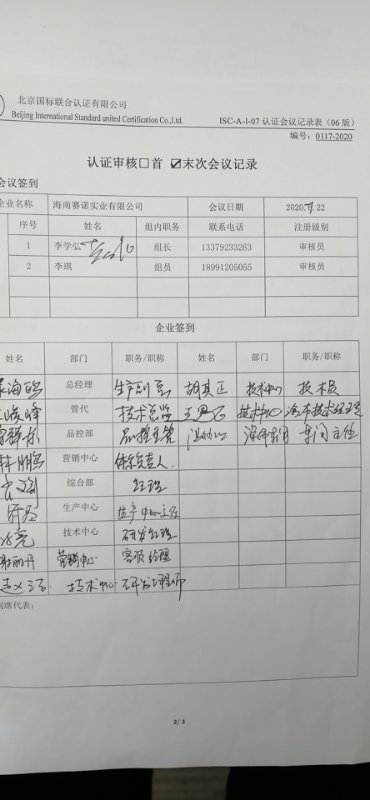 北京国标联合认证有限公司
Beijing International Standard united Certification Co.,Ltd.
ISC-A-I-07 认证会议记录表（06 版）
编号：0117-2020
认证审核□首 ☑末次会议记录
会议签到
企业名称 海南赛诺实业有限公司 会议日期 2020. .22
序号 姓名 组内职务 联系电话 注册级别
1 李学弘 组长 13379233263 审核员
2 李琪 组员 18991205055 审核员
企业签到
姓名 部门 职务/职称 姓名 部门 职务/职称
总经理 生产副总 胡其正 技术中心 技术员
管代 技术总监 技术中心
品控部 品控主管 车间主任
营销中心 体系负责人
综合部 经理
生产中心 生产中心主任
技术中心 研发经理
营销中心 客服经理
技术中心 研发工程师
列席代表：
2/3